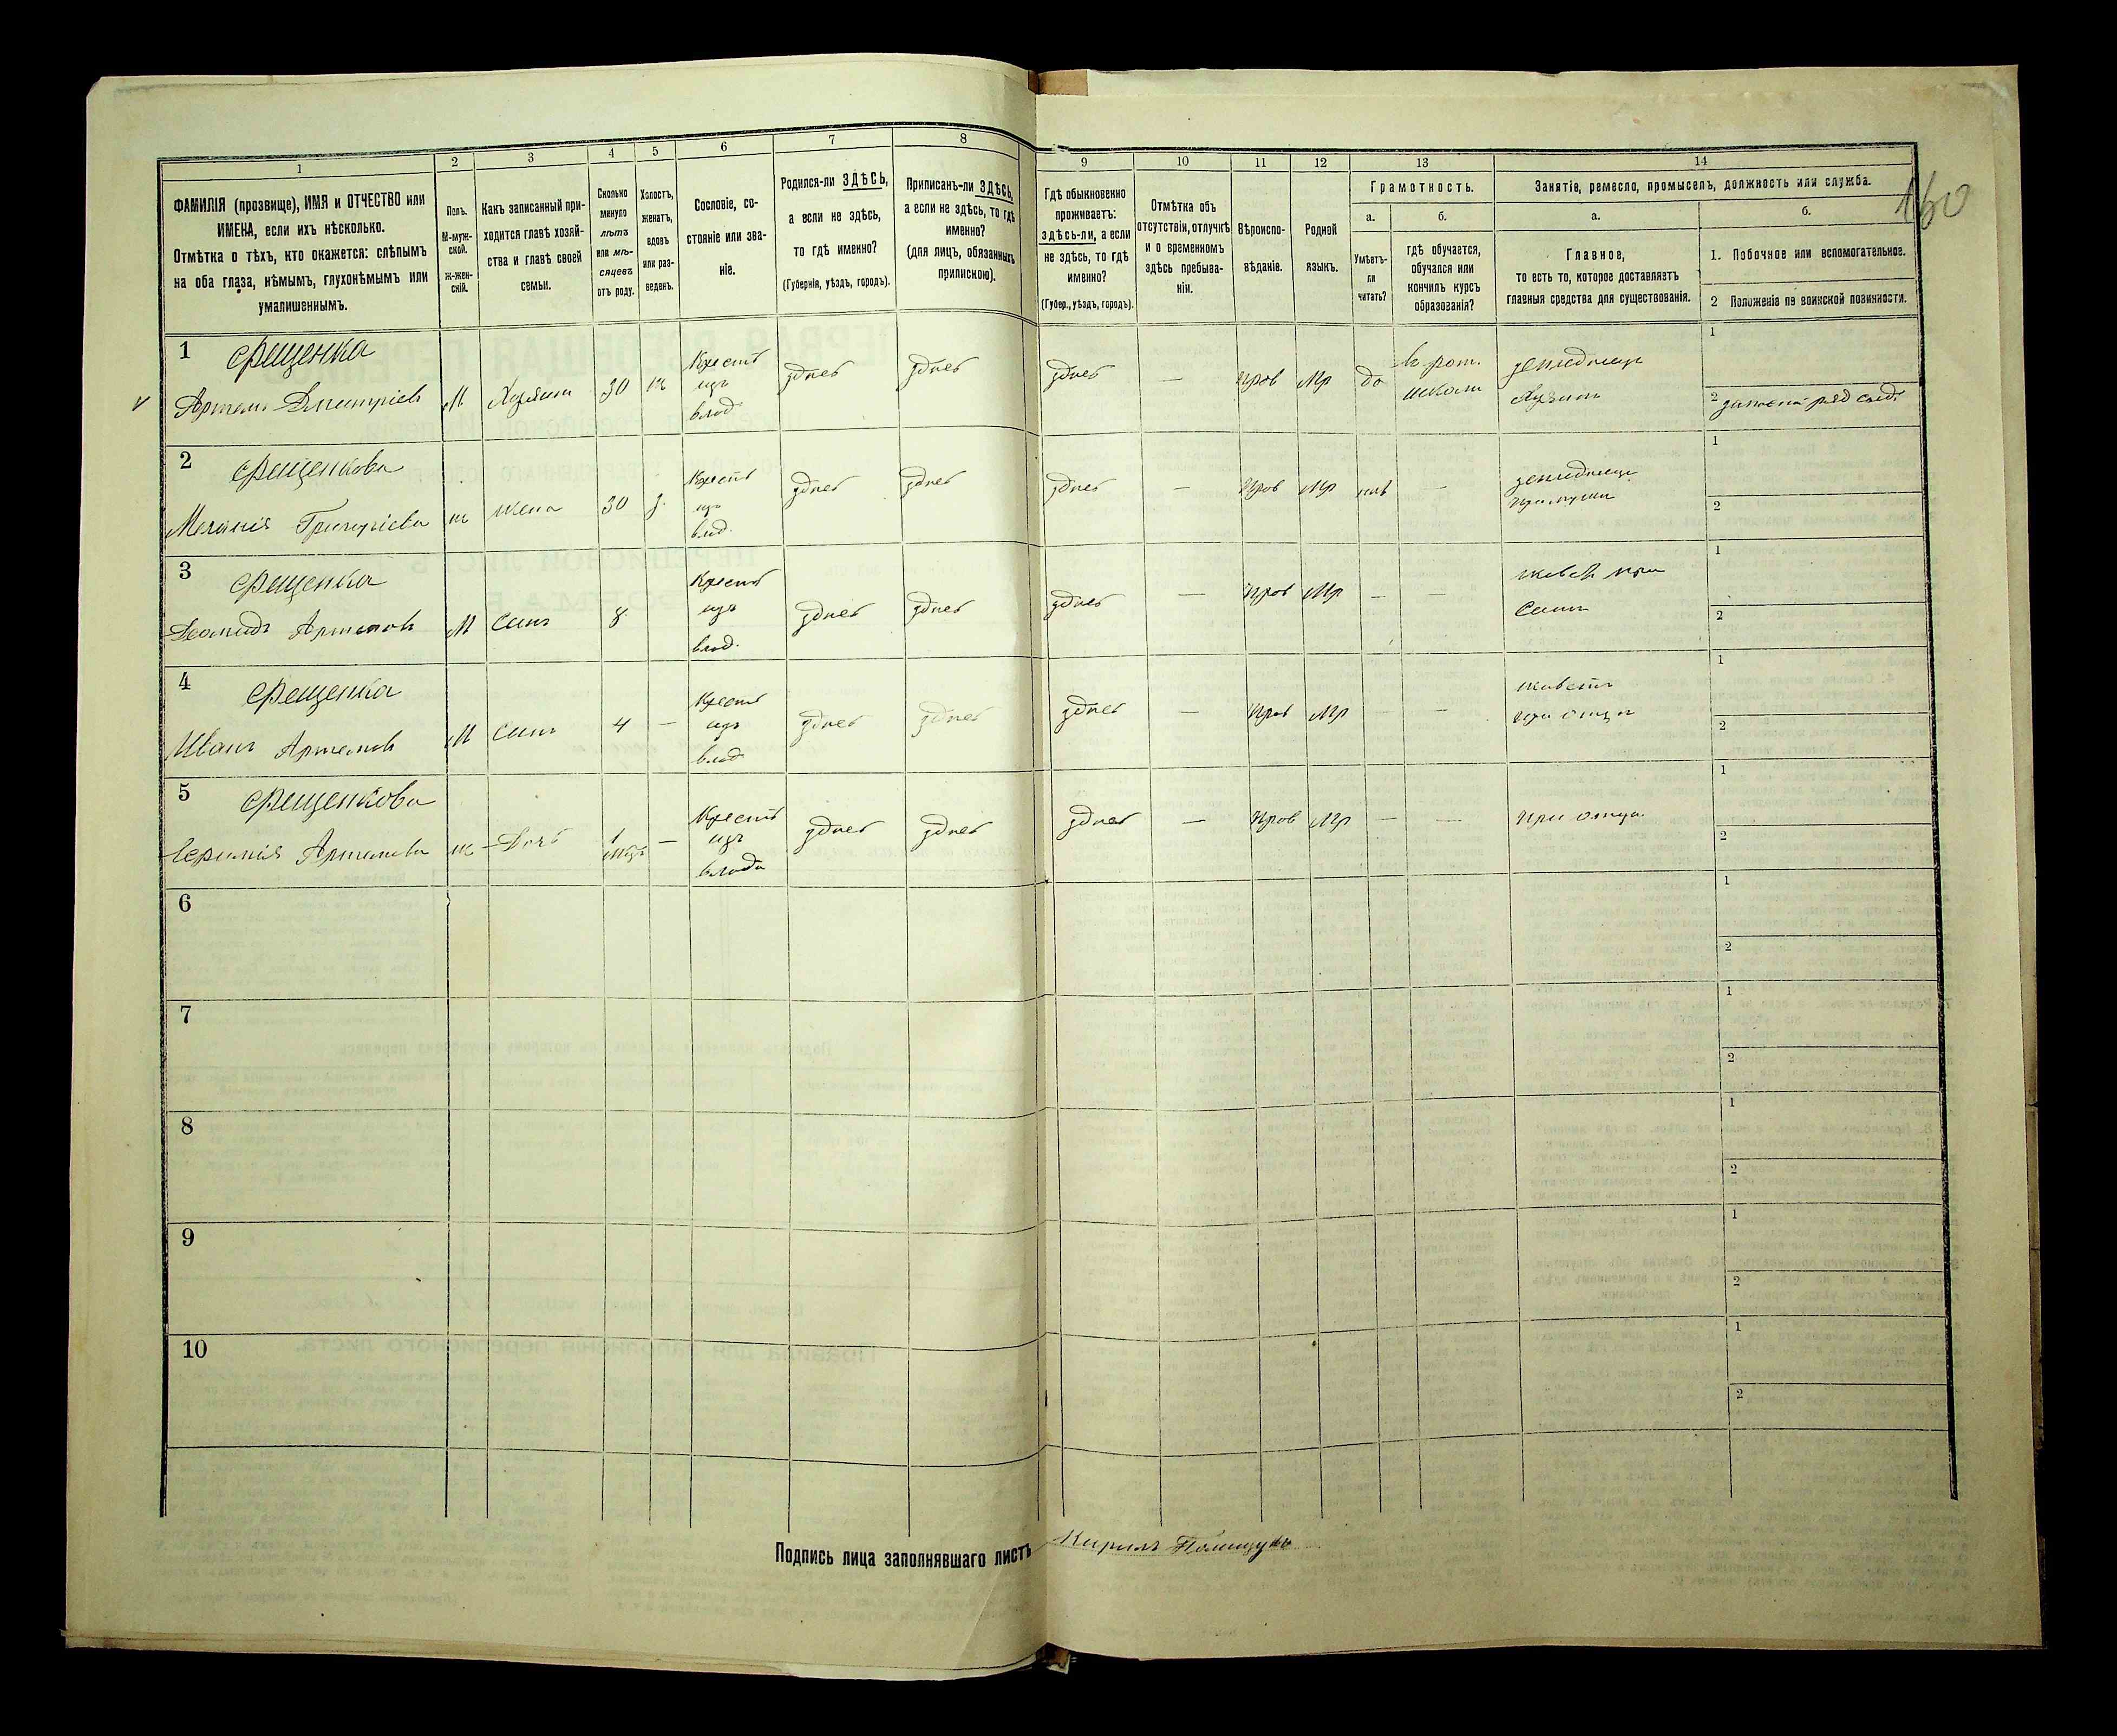 1
2
3
4
5
6
7
8
ФАМИЛІЯ (прозвище), ИМЯ и ОТЧЕСТВО или
ИМЕНА, если ихъ нѣсколько.
Отмѣтка о тѣхъ, кто окажется: слѣпымъ
на оба глаза, нѣмымъ, глухонѣмымъ или
умалишеннымъ.
Полъ.
М-муж-
ской.
ж-жен-
скій.
Какъ записанный при-
ходится главѣ хозяй-
ства и главѣ своей
семьи.
Сколько
минуло
лѣтъ
или мѣ-
сяцевъ
отъ роду.
Холостъ,
женатъ,
вдовъ
или раз-
веденъ.
Сословіе, со-
стояніе или зва-
ніе.
Родился-ли ЗДѢСЬ,
а если не здѣсь,
то гдѣ именно?
(Губернія, уѣздъ, городъ).
Приписанъ-ли ЗДѢСЬ,
а если не здѣсь, то гдѣ
именно?
(для лицъ, обязанныхъ
припискою).
9
10
11
12
13
14
Гдѣ обыкновенно
проживаетъ:
здѣсь-ли, а если
не здѣсь, то гдѣ
именно?
(Губер., уѣздъ, городъ).
Отмѣтка объ
отсутствіи, отлучкѣ
и о временномъ
здѣсь пребыва-
ніи.
Вѣроиспо-
вѣданіе.
Родной
языкъ.
Грамотность.
а.
б.
Умѣетъ-
ли
читать?
гдѣ обучается,
обучался или
кончилъ курсъ
образованія?
Занятіе, ремесло, промыселъ, должность или служба.
а.
б.
Главное,
то есть то, которое доставляетъ
главныя средства для существованія.
1. Побочное или вспомогательное.
2 Положеніе по воинской повинности.
160
1 Фещенка
Артемъ Дмитріевъ М Хозяинъ 30 ж Крестъ изъ влад здѣсь здѣсь здѣсь — Прав Мр да школи
Хозяинъ
1
2
2 Фещенкова
Меланія Григоріева ж жена 30 з. Крестъ изъ влад. здѣсь здѣсь здѣсь — Прав Мр нѣт —
1
2
3 Фещенка
Артемовъ М Сынъ 8 Крестъ изъ влад. здѣсь здѣсь здѣсь — Прав Мр — —
1
2
4 Фещенка
Иванъ Артемовъ М Сынъ 4 — Крестъ изъ влад здѣсь здѣсь здѣсь — Прав Мр — — при отцѣ
1
2
5 Фещенкова
Артемова ж Дочь 1 мцъ — Крестъ изъ влад здѣсь здѣсь здѣсь — Прав Мр — — при отцѣ
1
2
6
1
2
7
1
2
8
1
2
9
1
2
10
1
2
Подпись лица заполнявшаго листъ Кирилъ Полищукъ